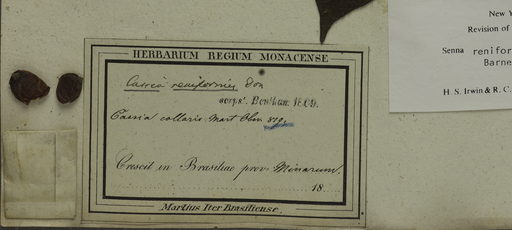 HERBARIUM REGIUM MONACENSE
Cassia reniformis Don
scrps. Bentham. 1869.
Cassia collaris Mart Obs. 819.
Crescit in Brasiliae prov. Minarum.
18
Martius Iter Brasiliense.
New Y
Revision of
Senna renifor
Barne
H. S. Irwin & R. C.